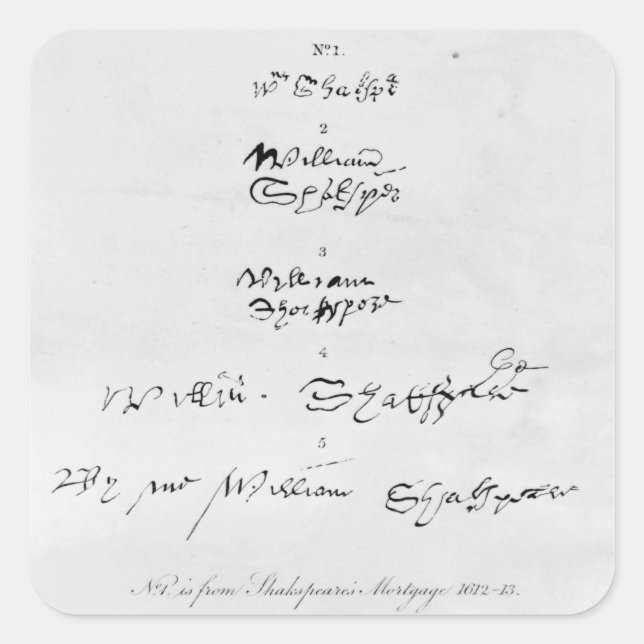 Nº1.
Wm Shakspe
2
William
Shakspere
3
William
Shakspere
4
Willm. Shakspere
5
By me William Shakspeare
Nº1. is from Shakspeare's Mortgage 1612-13.